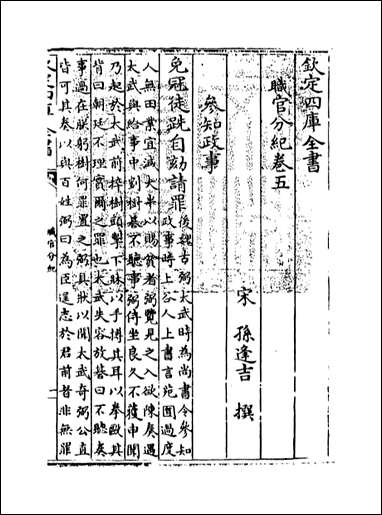 欽定四庫全書
職官分紀卷五
宋 孫逢吉 撰
參知政事
免冠徒跣自劾請罪後魏古弼太武時為尚書令參知
政事時上谷人上書言苑囿過度
人無田業宜減大半以賜貧者弼覽見之入欲陳奏遇
太武與給事中劉樹碁不聽事弼侍坐良久不獲申聞
乃起於太武前捽樹頭掣下牀以手搏其耳以拳毆其
背曰朝廷不理實爾之罪也太武失容放碁曰不聽奏
事過在朕躬樹何罪置之弼具狀以聞太武奇弼公直
皆可其奏以與百姓弼曰為臣逞志於君前者非無罪
職官分紀
一